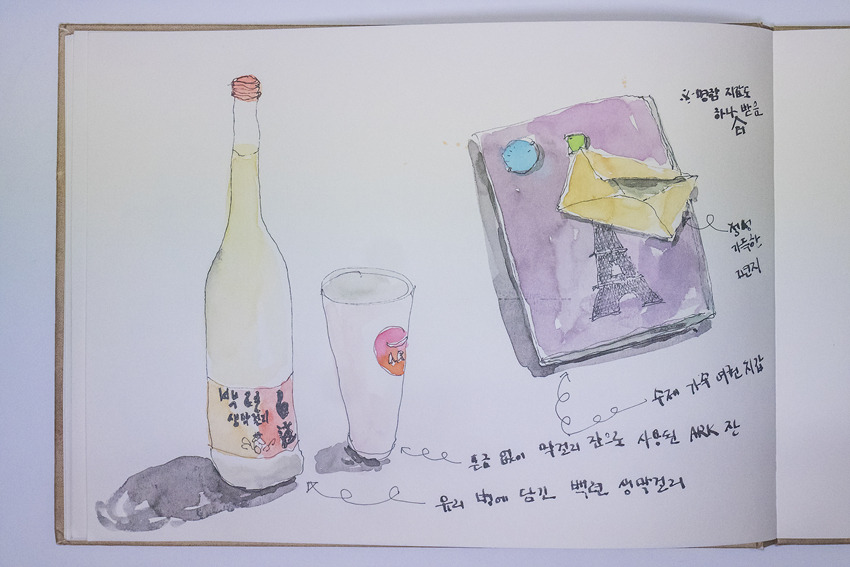 ※ 명함 지갑도
하나 더 받음
정성
가득한
편지
수제 가죽 여권지갑
뜬금 없이 막걸리 잔으로 사용된 ARK 잔
유리 병에 담긴 백련 생막걸리
백련
생막걸리
白蓮